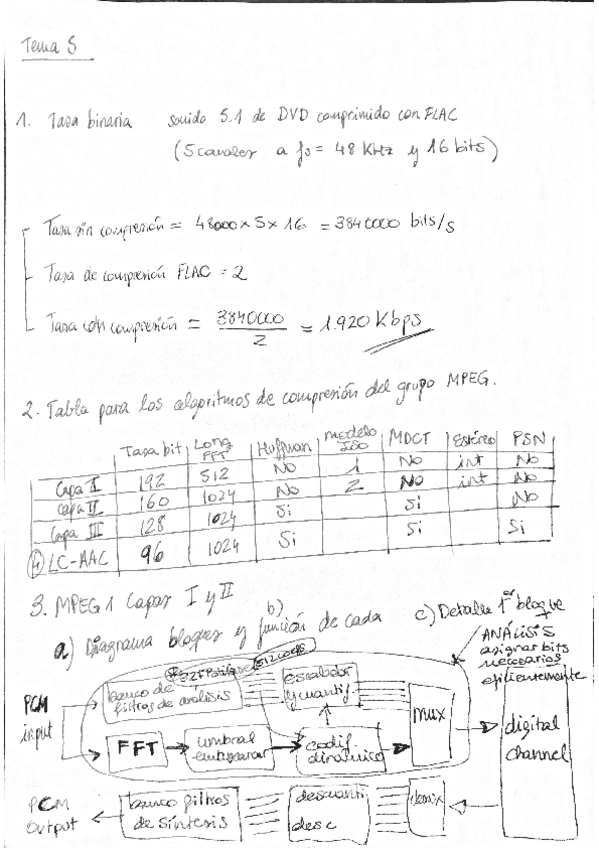 Tema 5
1. Tasa binaria sonido 5.1 de DVD comprimido con FLAC
(5 canales a fs = 48 KHz y 16 bits)
Tasa sin compresión = 48000 x 5 x 16 = 3840000 bits/s
Tasa de compresión FLAC = 2
Tasa con compresión = 3840000 / 2 = 1.920 Kbps
2. Tabla para los algoritmos de compresión del grupo MPEG.
Tasa bit Long FFT Huffman modelo ISO MDCT Estéreo PSN
Capa I 192 512 No 1 No int No
Capa II 160 1024 No 2 No int No
Capa III 128 1024 Si Si No
LC-AAC 96 1024 Si Si Si
3. MPEG1 Capas I y II
a) Diagrama bloques y b) función de cada c) Detalle 1er bloque
ANÁLISIS
asignar bits
necesarios
eficientemente
512 coefs
banco de
filtros de análisis
escalador
y cuantif.
PCM
input
FFT
umbral
enmascarar
codif.
dinámico
mux
digital
channel
PCM
output
banco filtros
de síntesis
descuanti
desc
demux